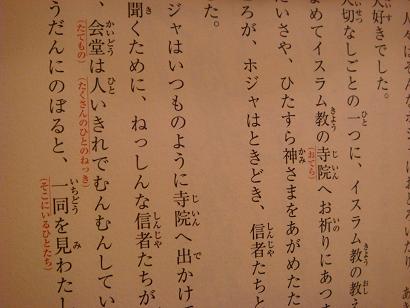 好きでした。
切なしごとの一つに、イスラム教の教
めてイスラム教の寺院へお祈りにあつ
(おてら)
いさや、ひたすら神さまをあがめたた
ろが、ホジャはときどき、信者たちと
た。
ジャはいつものように寺院へ出かけ
聞くために、ねっしんな信者たちが
、会堂は人いきれでむんむんしてい
(たてもの) (たくさんのひとのねっき)
うだんにのぼると、一同を見わたし
(そこにいるひとたち)